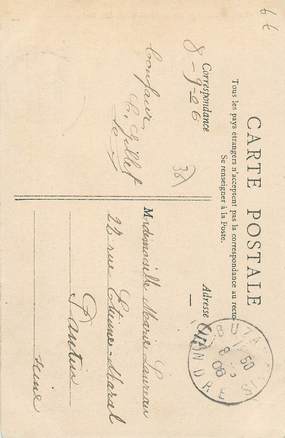 CARTE POSTALE
Tous les pays étrangers n'acceptent pas la correspondance au recto
Se renseigner à la Poste.
Correspondance
Adresse
8-9-06
38
Mademoiselle Marie
22 rue Etienne-Marcel
Pantin
Seine
INDRE
6 €